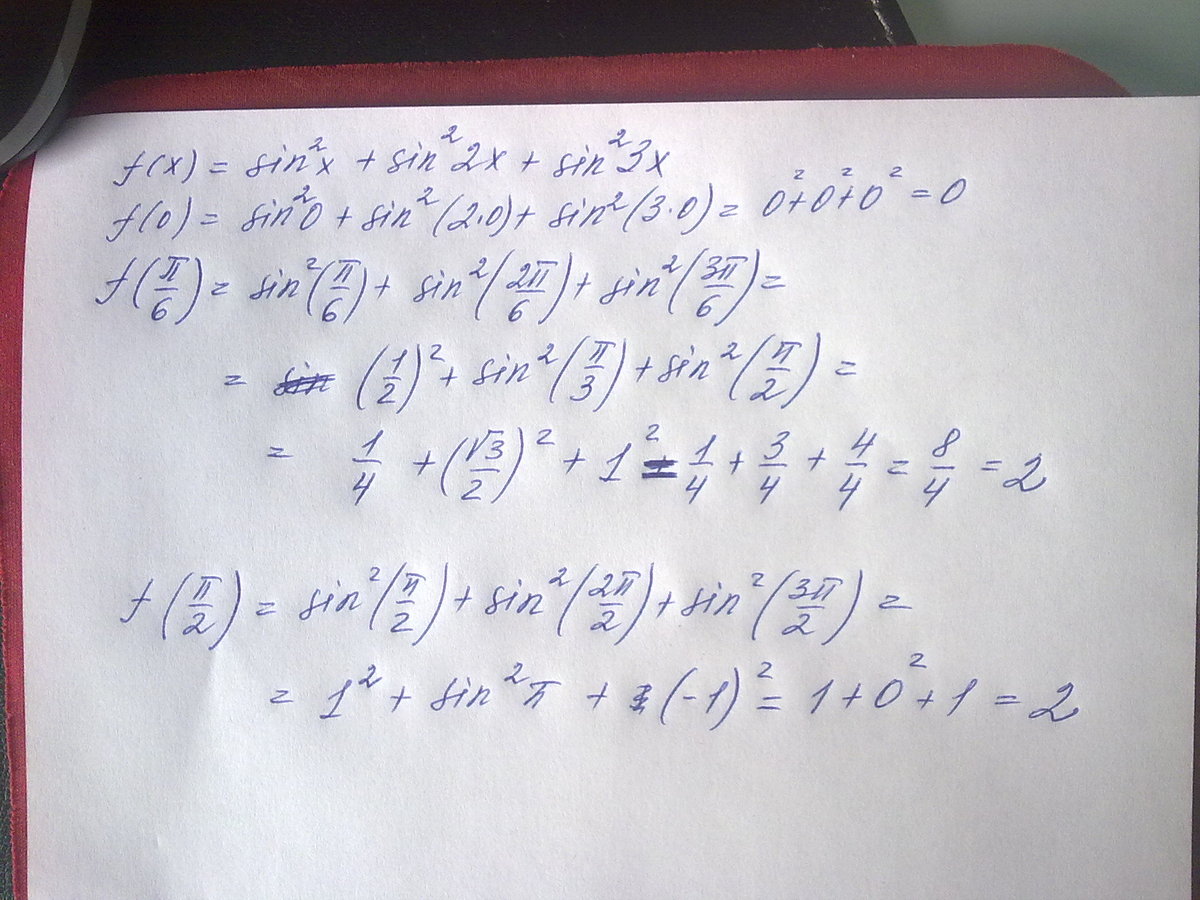 f(x) = sin²x + sin²2x + sin²3x
f(0) = sin²0 + sin²(2·0) + sin²(3·0) = 0² + 0² + 0² = 0
f(π/6) = sin²(π/6) + sin²(2π/6) + sin²(3π/6) =
= (1/2)² + sin²(π/3) + sin²(π/2) =
= 1/4 + (√3/2)² + 1² = 1/4 + 3/4 + 4/4 = 8/4 = 2
f(π/2) = sin²(π/2) + sin²(2π/2) + sin²(3π/2) =
= 1² + sin²π + (-1)² = 1 + 0² + 1 = 2